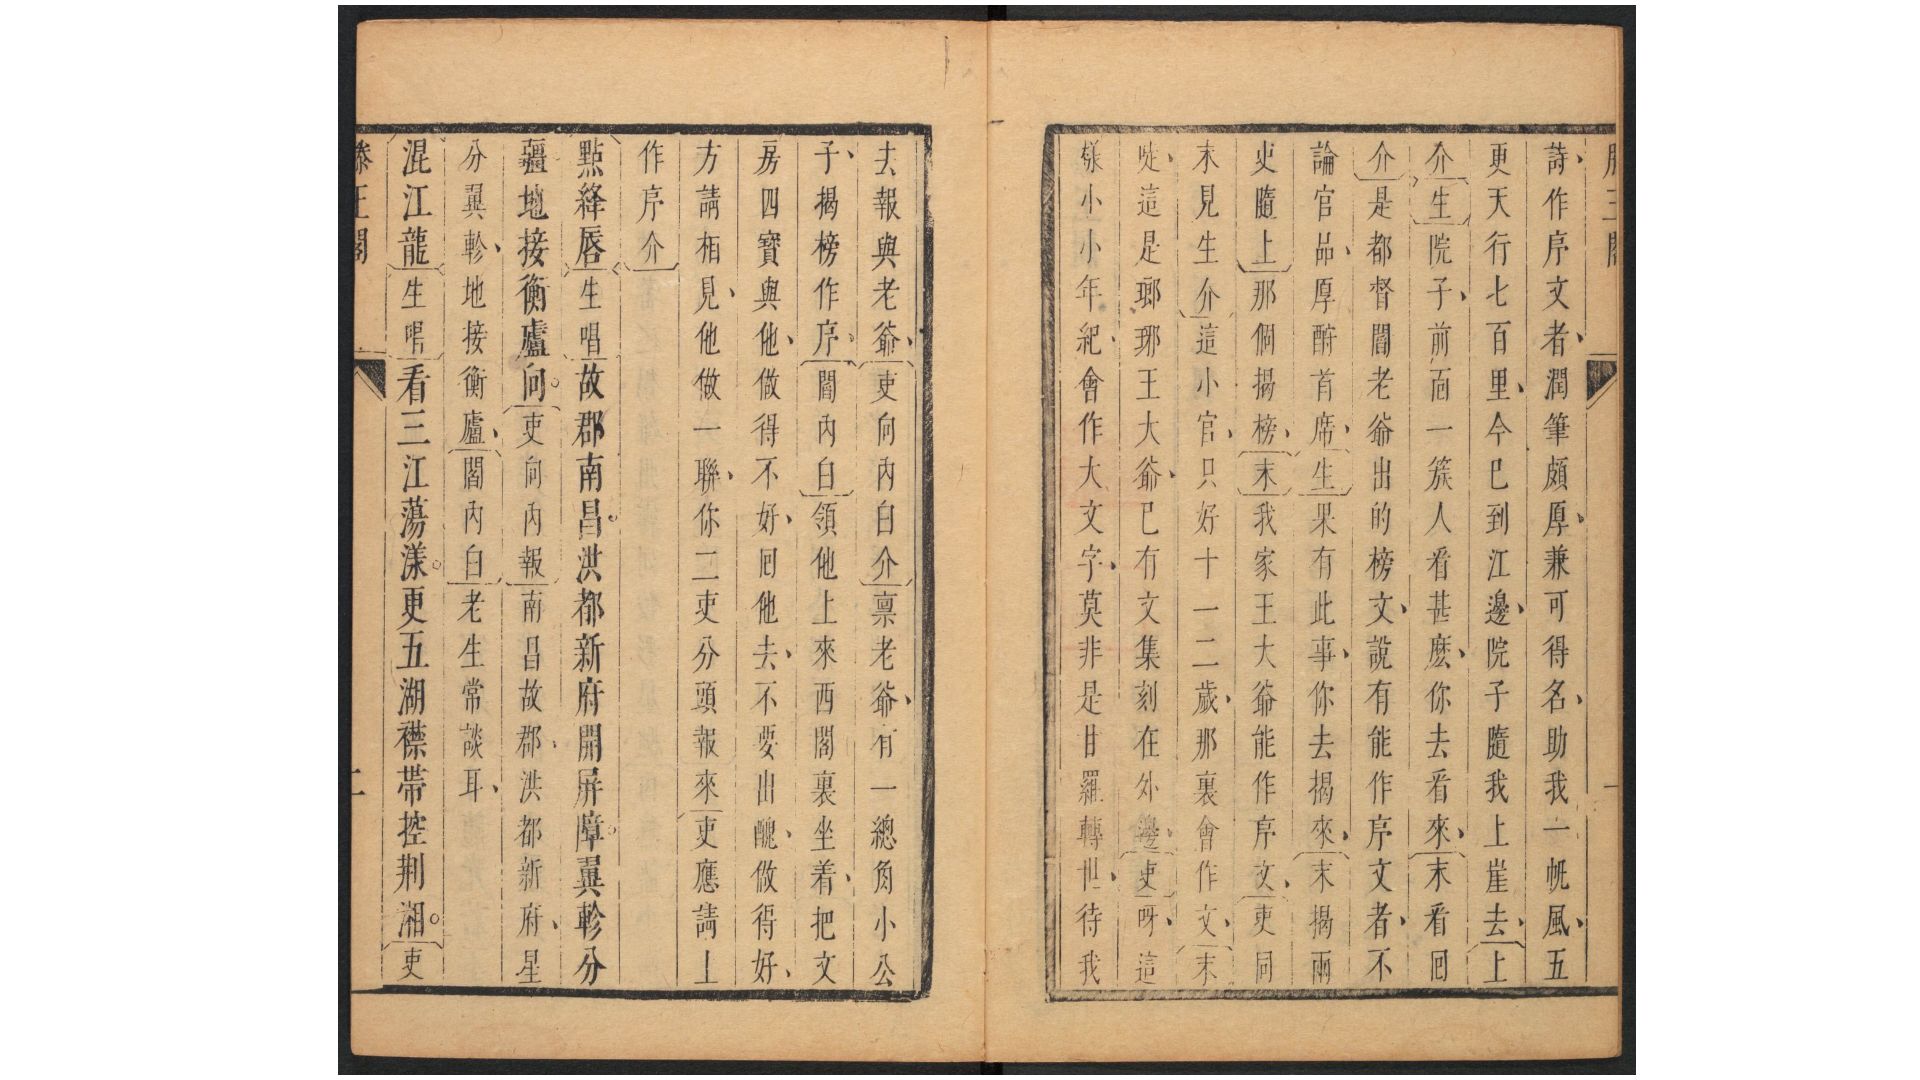 詩作序文者潤筆頗厚兼可得名助我一帆風五
更天行七百里今巳到江邊院子隨我上崖去上
介生院子前面一簇人看甚麽你去看來末看回
介是都督閻老爺出的榜文說有能作序文者不
論官品厚酧首席生果有此事你去揭來末揭兩
吏隨上那個揭榜末我家王大爺能作序文吏同
末見生介這小官只好十一二歲那裏會作文末
唗這是瑯琊王大爺巳有文集刻在外邊吏呀這
様小小年紀會作大文字莫非是甘羅轉世待我
去報與老爺吏向內白介禀老爺有一總角小公
子揭榜作序閻內白領他上來西閣裏坐着把文
房四寳與他做得不好回他去不要出醜做得好
方請相見他做一聯你二吏分頭報來吏應請上
作序介
點絳唇生唱故郡南昌洪都新府開屏障翼軫分
疆地接衡廬向吏向內報南昌故郡洪都新府星
分翼軫地接衡廬閻內白老生常談耳
混江龍生唱看三江蕩漾更五湖襟帶控荆湘吏
滕王閣 二